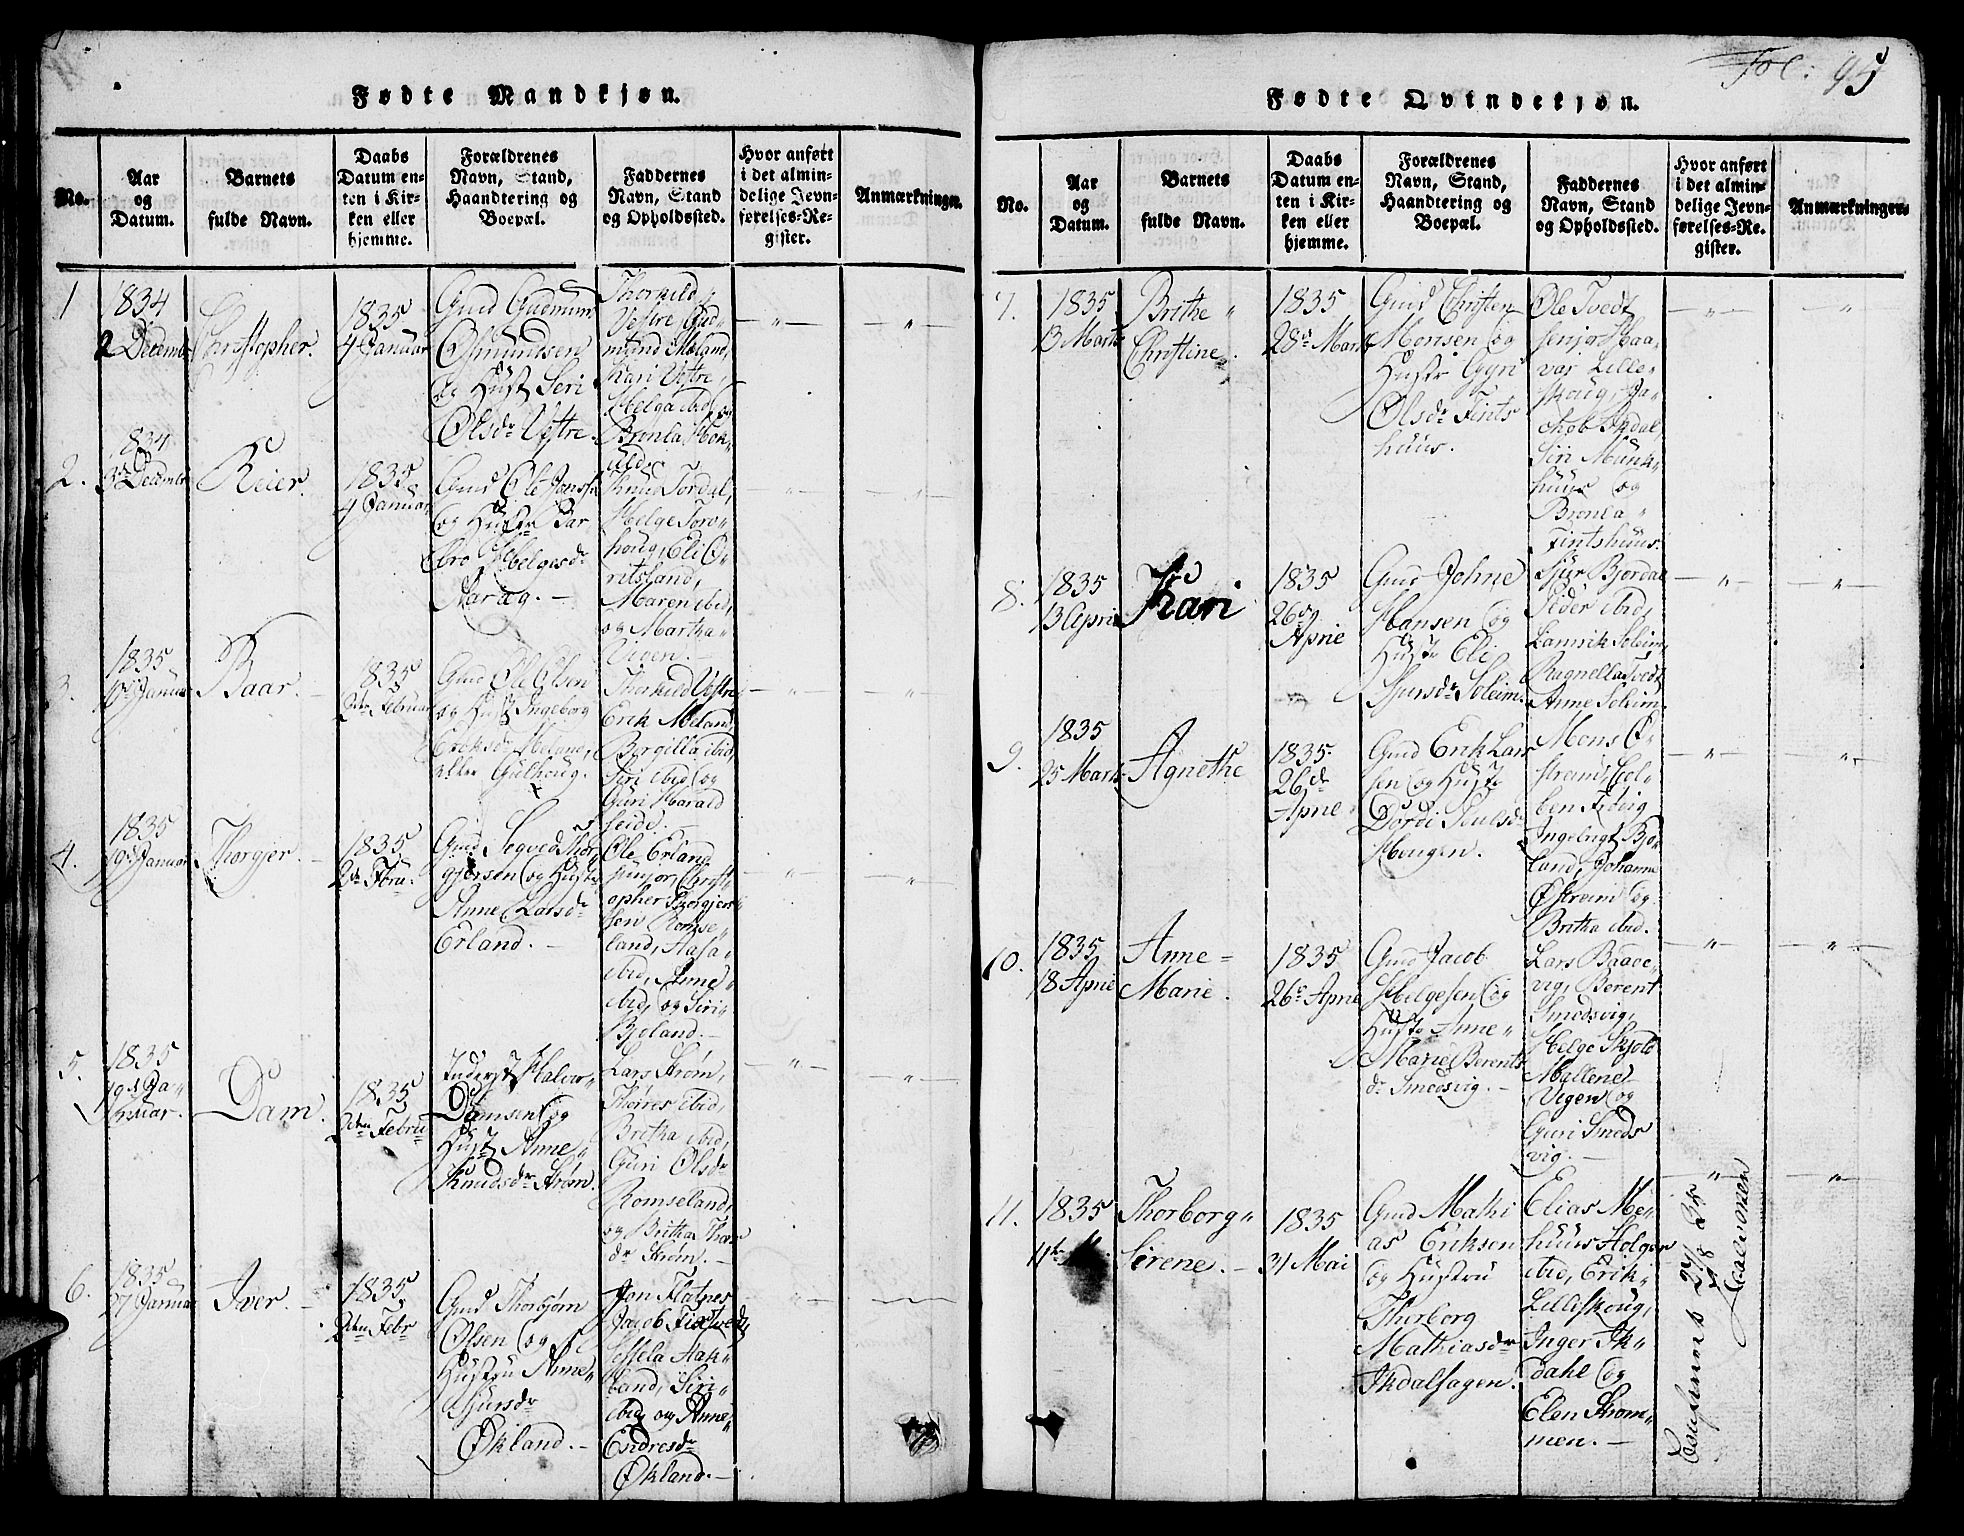 Fødte Mandkjøn.
No.
Aar
og
Datum.
Barnets
fulde Navn.
Daabs
Datum en-
ten i Kir-
ken eller
hjemme.
Forældrenes
Navn, Stand,
Haandtering og
Boepæl.
Faddernes
Navn, Stand
og Opholdssted.
Hvor anført
i det almin-
delige Jevn-
førelses-Re-
gister.
Anmærkninger.
1
1834
2 Decemb
Christopher.
1835
4 Januar
Gmd Gudmun
Osmundsen
og Hust Seri
Olsdr Vestre.
Thorkild
Vestre, Gud-
mund Meland,
Kari Vestre,
Helga ibid, og
Bronla
2.
1834
December
Reier.
1835
4 Januar
Gmd Ole Jons
og Hustr Bar-
bro Helgesdr
Aaræg.
Knud Tordal,
Helge Toro-
houg, Eli Ø-
ritsland,
Maren ibid,
og Martha
Vigen.
3.
1835
Januar
Baar.
1835
2den Februar
Gmd Ole Olsen
og Hust Ingeborg
Eriksdr Meland,
eller Gulhoug.
Thorkild Vestre
Erik Meland,
Borgilla ibid,
Siri ibid og
Guri Harald
heide.
4.
1835
19de Januar
Thorgjer.
1835
2de Febru.
Gmd Segved Thor-
gjersen og Hustr
Anne Larsdr
Erland.
Ole Erland
senjor, Christ-
opher Thorgjer-
sen Romse-
land, Aasa
ibid, Anne
ibid, og Siri
Bjoland.
5.
1835
19de Ja-
nuar.
Dam.
1835
2den Febru
Inderst Halvor
Damsen og
Hust Anne
Knudsdr Strøm.
Lars Strøm,
Thores ibid,
Britha ibid,
Guri Olsdr
Romseland,
og Britha Thor
dr Strøm.
6.
1835
27 Januar
Iver.
1835
2den Febr
Gmd Thorbjørn
Olsen og
Hustru Anne
Sjursdr
Økland.
Jon Flatnes
Jacob Fixtvedt,
Sessela Aak-
land, Siri
ibid, og Anne
Endresdr
Økland.
Fol: 95
Fødte Qvindekjøn.
No.
Aar
og
Datum.
Barnets
fulde Navn.
Daabs
Datum en-
ten i Kir-
ken eller
hjemme.
Forældrenes
Navn, Stand,
Haandtering og
Boepæl.
Faddernes
Navn, Stand
og Opholdssted.
Hvor anført
i det almin-
delige Jevn-
førelses-Re-
gister.
Anmærkninger.
7.
1835
13 Marts
Brithe
Christine.
1835
28de Mart
Gmd Christen
Monsen og
Hustr Gyri
Olsdr Fints
huus.
Ole Tvedt
senjor, Haa-
var Lille-
skoug, Ja-
chob Ikdal,
Siri Munk-
huus og
Bronla
Fintshuus.
8.
1835
13 April
Kari
1835
26de
April
Gmd Johne
Hansen og
Hustr Eli
Sjursdr Soleim.
Sjur Bjordal
Peder ibid,
Lanrik Soleim,
Ragnella Tvedt,
Anne Soleim.
9.
1835
25 Marts
Agnethe
1835
26de
April
Gmd Erik Lars
sen og Hustr
Dordi Poulsdr
Haugen.
Mons Ø-
strem, Col-
ben Fidvig
Ingebrigt Bjo-
land, Johanna
Østrem og
Britha ibid.
10.
1835
18 April
Anne-
Marie.
1835
26de April
Gmd Jacob
Helgesen og
Hustr Anne
Marie Berents
dr Smedsvig.
Lars Baade-
vig, Berent
Smedsvig,
Helge Skjold
Mallene
Vigen og
Guri Smeds
vig.
11.
1835
11te M.
Thorborg
Sirene.
1835
31 Mai
Gmd Mathi
as Eriksen
og Hustru
Thorborg
Mathiasdr
Ikdalsagen.
Elias Me-
huus Holger
ibid, Erik
Lilleskoug,
Inger Ik-
dahl og
Elen Strøm-
men.